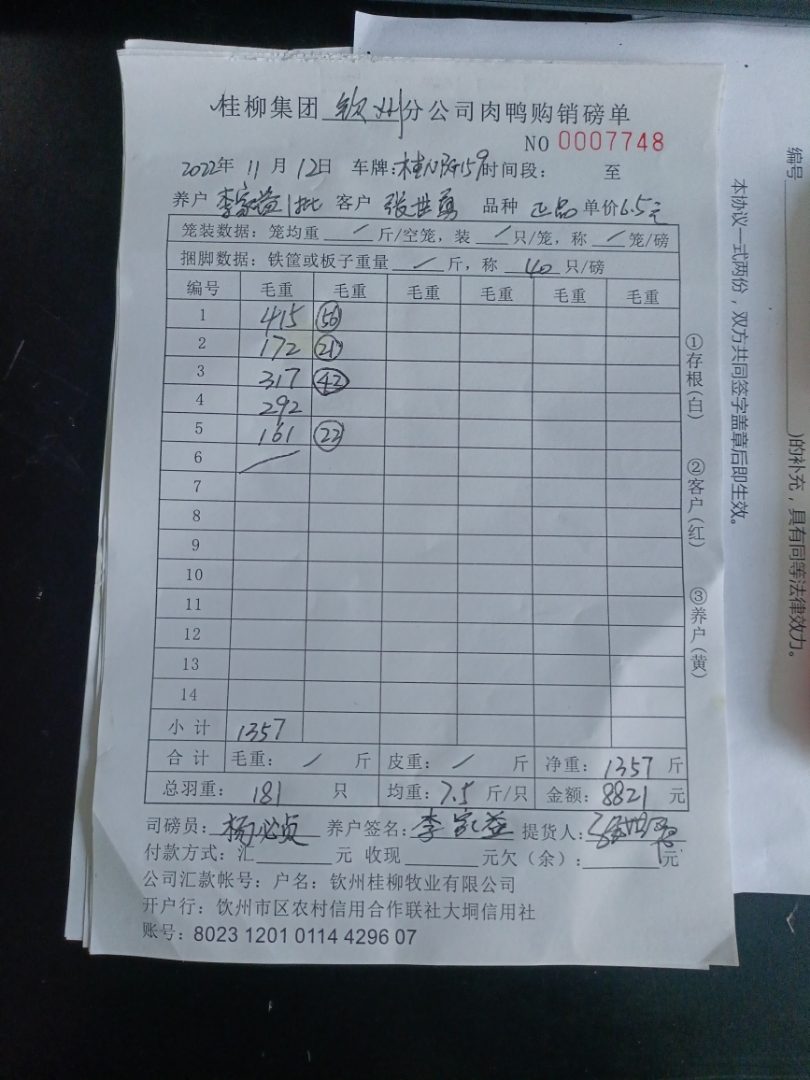 桂柳集团 钦州 分公司肉鸭购销磅单
NO 0007748
2022年 11 月 12日 车牌: 时间段: 至
养户 李家益1批 客户 张世勇 品种 正品 单价6.5元
笼装数据: 笼均重 / 斤/空笼, 装 / 只/笼, 称 / 笼/磅
捆脚数据: 铁筐或板子重量 / 斤, 称 40 只/磅
编号 毛重 毛重 毛重 毛重 毛重 毛重
1 415 56
2 172 21
3 317 42
4 292
5 161 22
6 /
7
8
9
10
11
12
13
14
小 计 1357
合 计 毛重: / 斤 皮重: / 斤 净重: 1357 斤
总羽重: 181 只 均重: 7.5 斤/只 金额: 8821 元
司磅员: 杨必贞 养户签名: 李家益 提货人:
付款方式: 汇 元 收现 元欠(余): 元
公司汇款帐号: 户名: 钦州桂柳牧业有限公司
开户行: 钦州市区农村信用合作联社大垌信用社
账号: 8023 1201 0114 4296 07
①存根(白) ②客户(红) ③养户(黄)
本协议一式两份，双方共同签字盖章后即生效。
编号 )的补充，具有同等法律效力。